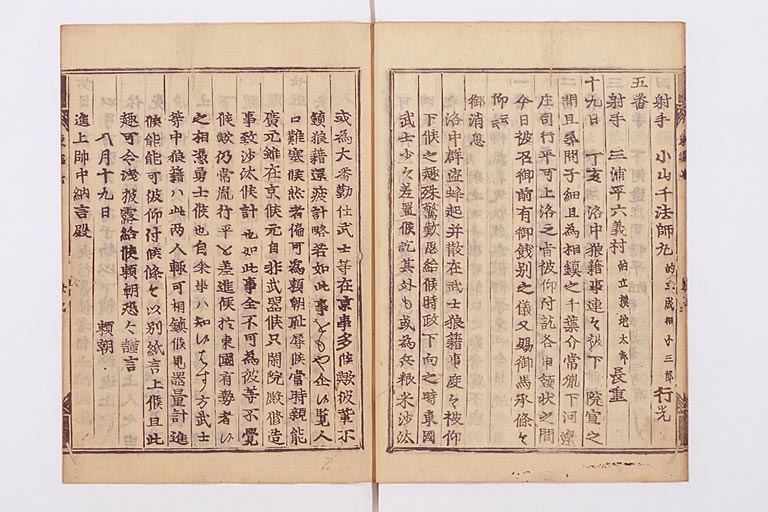 射手　小山千法師丸　的立成相小三郎　行光
五番
射手　三浦平六義村　的立横地太郎　長重
十九日　丁亥　洛中狼藉事連々被下　院宣之
間且尋問子細且為相鎮之千葉介常胤下河邊
庄司行平可上洛之旨被仰付訖各申領状之間
今日被召御前有御餞別之儀又賜御馬承條々
仰云云
御消息
洛中群盗蜂起并散在武士狼藉事度々被仰
下候之趣殊驚歎思給候時政下向之時東國
武士少々差置候訖其外も或為兵粮米沙汰
或為大番勤仕武士等在京事多候歟彼輩不
鎮狼藉還疲計略若如此事とも企い覧人
口難塞候然者偏可為頼朝恥辱候當時親能
廣元雖在京候元自非武器候只閑院殿修造
事致沙汰候計也如此事全不可為彼等不覺
候歟仍常胤行平を差進候於東國有勢者い
之相憑勇士候也自余事ハ知いはす方武士
等中狼藉ハ此両人輙可相鎮候見器量計進
候能能可被仰付候條々以別紙言上候且此
趣可令洩披露給候頼朝恐々謹言
八月十九日　頼朝
進上帥中納言殿